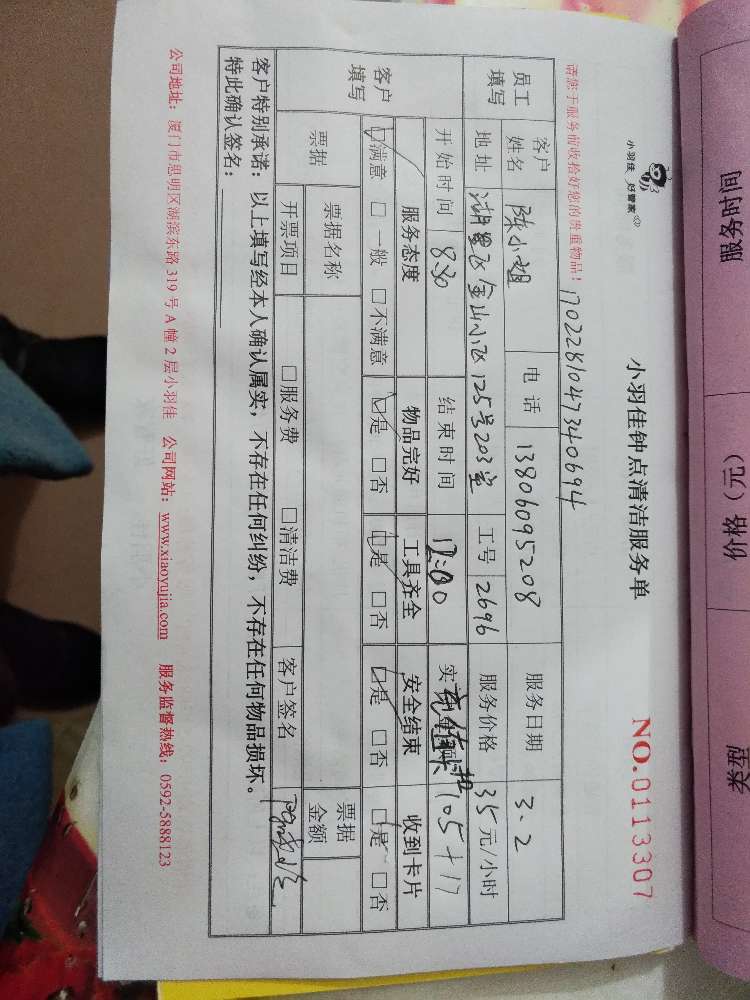 小羽佳 好管家
小羽佳钟点清洁服务单
NO.0113307
请您于服务前收拾好您的贵重物品！
1702281047340694
员工填写
客户姓名 陈小姐 电话 13806095208 服务日期 3.2
地址 湖里区金山小区125号203室 工号 2696 服务价格 35元/小时
开始时间 8:30 结束时间 12:00 105+17
客户填写
服务态度 物品完好 工具齐全 安全结束 收到卡片
☑满意 □一般 □不满意 ☑是 □否 ☑是 □否 ☑是 □否 ☑是 □否
票据 票据名称 票据金额
开票项目 □服务费 □清洁费 客户签名
客户特别承诺：以上填写经本人确认属实，不存在任何纠纷，不存在任何物品损坏。
特此确认签名：
公司地址：厦门市思明区湖滨东路319号A幢2层小羽佳 公司网站：www.xiaoyujia.com 服务监督热线：0592-5888123
服务时间
价格（元）
类型